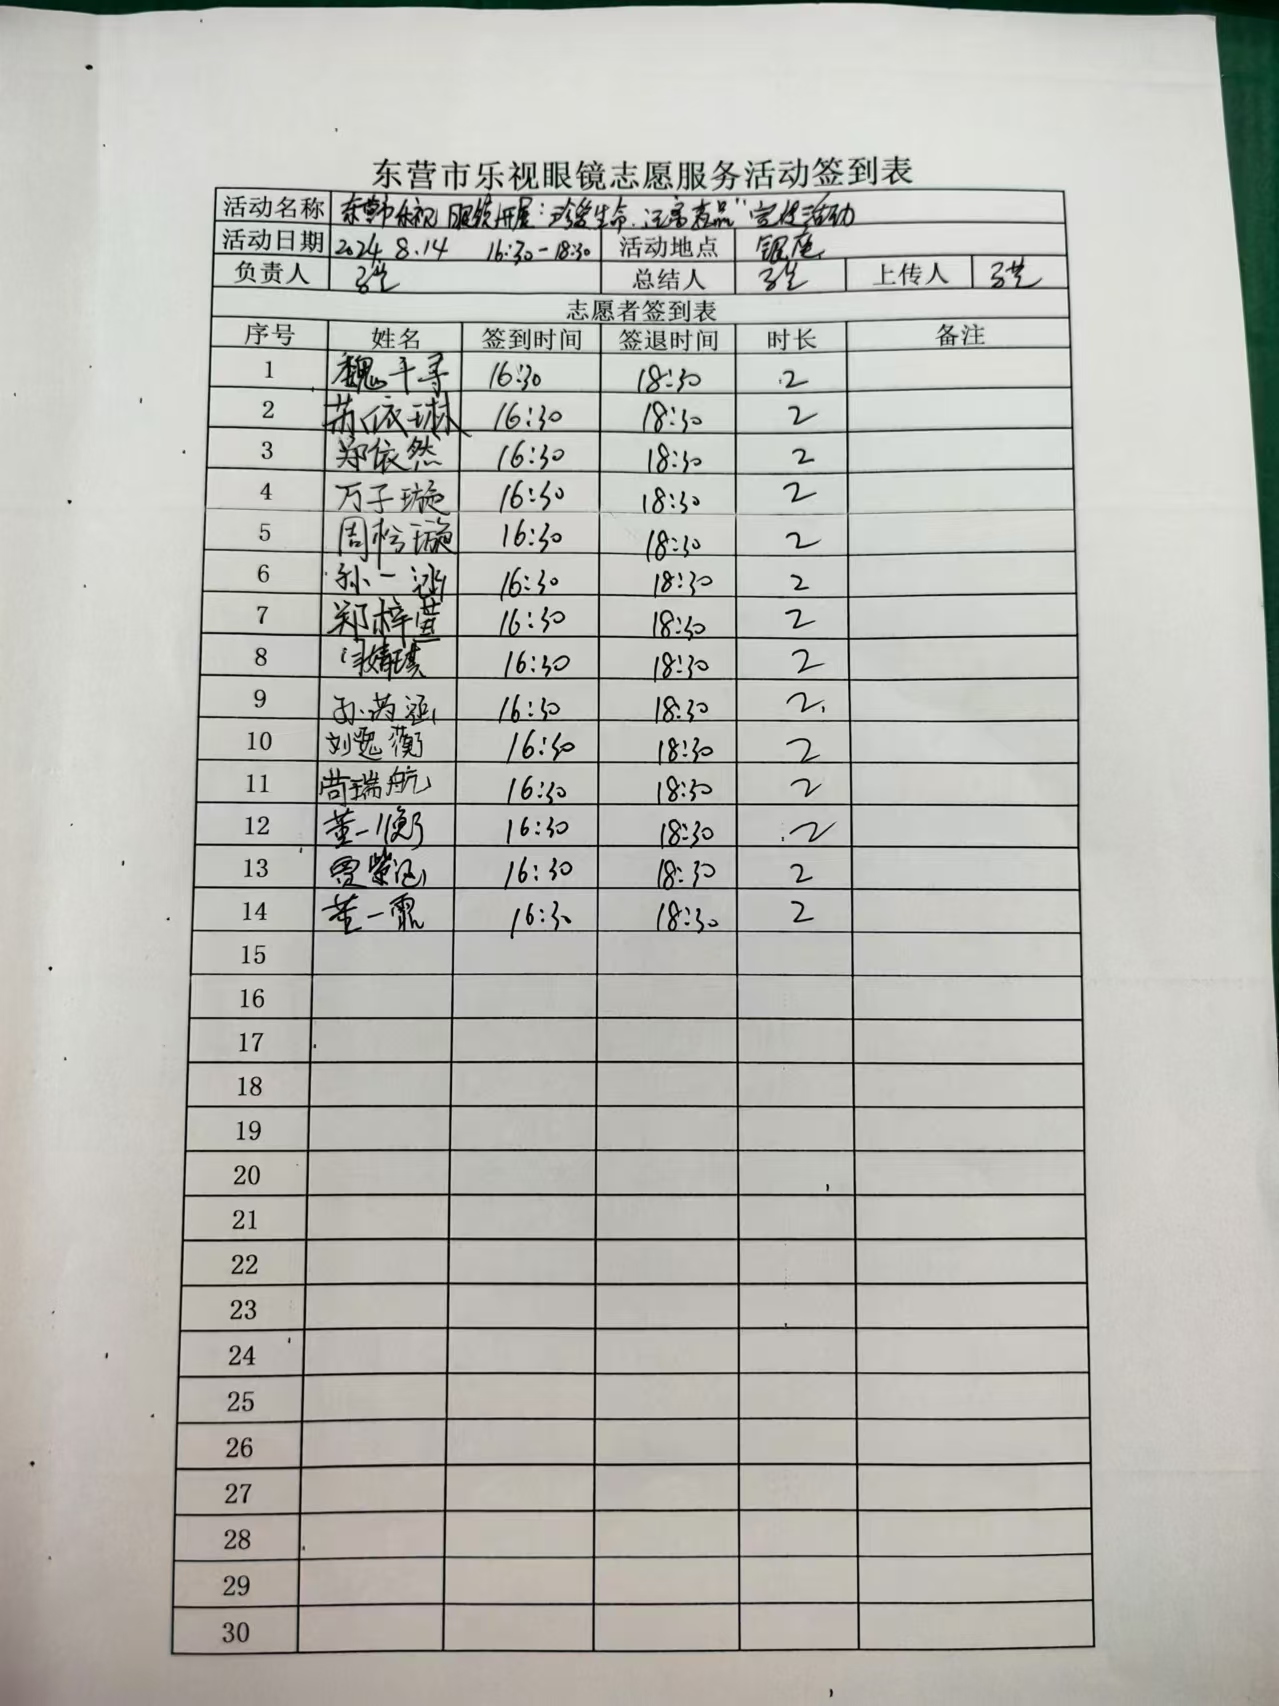 东营市乐视眼镜志愿服务活动签到表
活动名称 东营市乐视眼镜开展"珍爱生命.远离毒品"宣传活动
活动日期 2024.8.14 16:30-18:30 活动地点 银座
负责人 总结人 上传人
志愿者签到表
序号 姓名 签到时间 签退时间 时长 备注
1 魏千寻 16:30 18:30 2
2 苏依琳 16:30 18:30 2
3 郑依然 16:30 18:30 2
4 万子璇 16:30 18:30 2
5 周松璇 16:30 18:30 2
6 孙一涵 16:30 18:30 2
7 郑梓萱 16:30 18:30 2
8 闫婧琪 16:30 18:30 2
9 孙芮涵 16:30 18:30 2
10 刘逸蘅 16:30 18:30 2
11 苘瑞航 16:30 18:30 2
12 董一衡 16:30 18:30 2
13 贾紫涵 16:30 18:30 2
14 董一霏 16:30 18:30 2
15
16
17
18
19
20
21
22
23
24
25
26
27
28
29
30